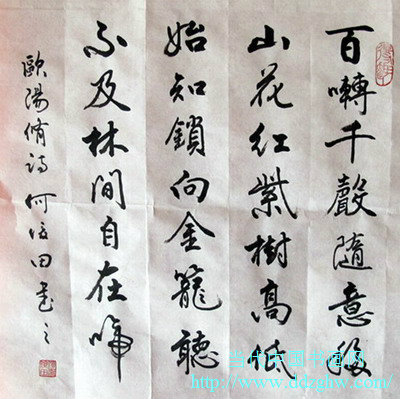 百囀千聲隨意移
山花紅紫樹高低
始知鎖向金籠聽
不及林間自在啼
歐陽脩詩 何田書之
当代中国书画网
http://www.ddzghw.com